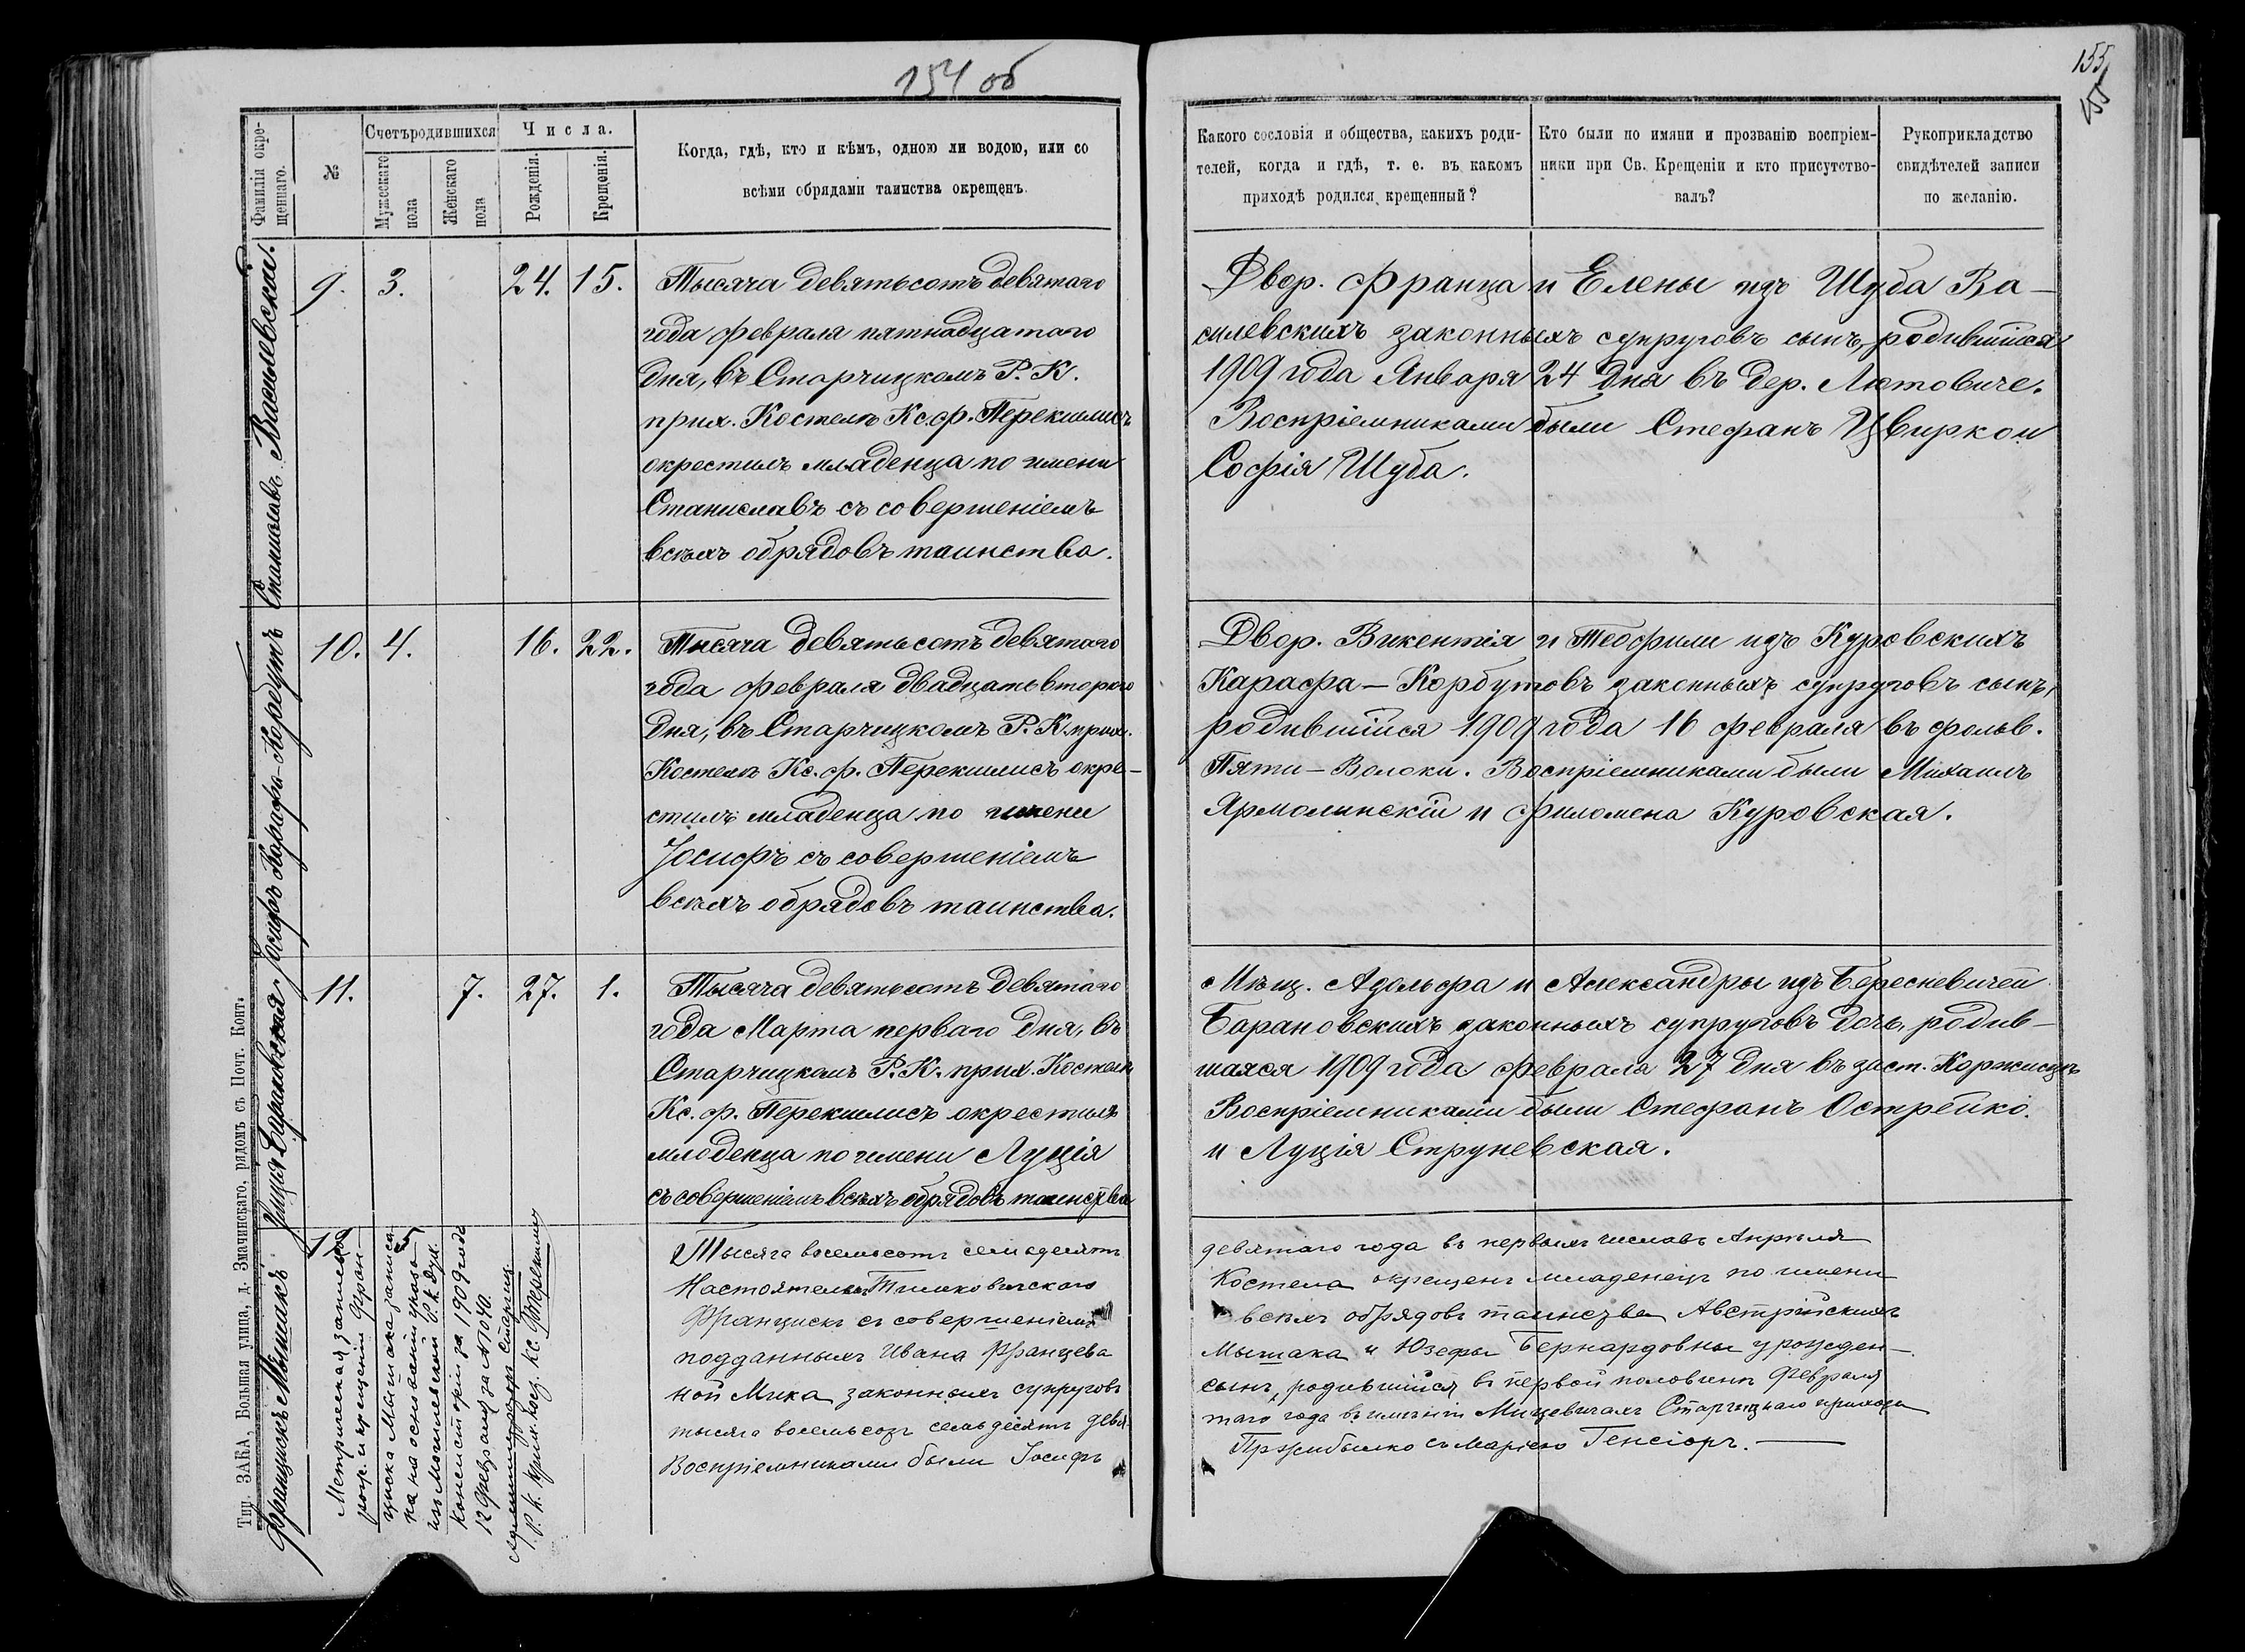 154 об
155
Фамилія окре-
щеннаго.
№
Счетъ родившихся
Мужескаго
пола
Женскаго
пола
Числа.
Рожденія.
Крещенія.
Когда, гдѣ, кто и кѣмъ, одною ли водою, или со
всѣми обрядами таинства окрещенъ.
Какого сословія и общества, какихъ роди-
телей, когда и гдѣ, т. е. въ какомъ
приходѣ родился крещенный?
Кто были по имяни и прозванію воспріем-
ники при Св. Крещеніи и кто присутство-
валъ?
Рукоприкладство
свидѣтелей записи
по желанію.
Станиславъ Василевскій.
9. 3. 24. 15.
Тысяча девятьсотъ девятаго
года февраля пятнадцатаго
дня, въ Старчицкомъ Р. К.
прих. Костелѣ Кс. ф. Перекшлисъ
окрестилъ младенца по имени
Станиславъ съ совершеніемъ
всѣхъ обрядовъ таинства.
Двор. Франца и Елены изъ Шуба Ва-
силевскихъ законныхъ супруговъ сынъ, родившійся
1909 года Января 24 дня въ дер. Лютовиче.
Воспріемниками были Стефанъ Цвирко и
Софія Шуба.
Іосифъ Карафа-Корбутъ
10. 4. 16. 22.
Тысяча девятьсотъ девятаго
года февраля двадцать втораго
дня, въ Старчицкомъ Р. К. прих.
Костелѣ Кс. ф. Перекшлисъ окре-
стилъ младенца по имени
Іосифъ съ совершеніемъ
всѣхъ обрядовъ таинства.
Двор. Викентія и Теофили изъ Куровскихъ
Карафа-Корбутовъ законныхъ супруговъ сынъ,
родившійся 1909 года 16 февраля въ фольв.
Пяти-Волоки. Воспріемниками были Михаилъ
Ярмолинскій и Филомена Куровская.
Луція Барановская.
11. 7. 27. 1.
Тысяча девятьсотъ девятаго
года Марта перваго дня, въ
Старчицкомъ Р. К. прих. Костелѣ
Кс. ф. Перекшлисъ окрестилъ
младенца по имени Луція
съ совершеніемъ всѣхъ обрядовъ таинства
Мѣщ. Адольфа и Александры изъ Бересневичей
Барановскихъ законныхъ супруговъ дочь, родив-
шаяся 1909 года февраля 27 дня въ заст. Коржисцѣ
Воспріемниками были Стефанъ Острейко
и Луція Струневская.
Францискъ Мышакъ
Метрическая запись о
рож. и крещеніи Фран-
циска Мышака записа-
на на основаніи указа
изъ Могилевской Р. К. Дух.
Консисторіи за 1909 года
12 февраля за № 1040.
Р. К. прих. кос. Кс.
Тысяча восемьсотъ семьдесятъ
Настоятелемъ Тимковичскаго
Францискъ съ совершеніемъ
подданныхъ Ивана Францева
ной Мика законныхъ супруговъ
тысяча восемьсотъ семьдесятъ девя-
Воспріемниками были Іосифъ
девятаго года въ первыхъ числахъ Апрѣля
Костела окрещенъ младенецъ по имени
всѣхъ обрядовъ таинства Австрійскихъ
Мышака и Юзефы Бернардовны урожден-
сынъ, родившійся въ первой половинѣ Февраля
таго года въ имѣніи Мицевичахъ Старчицкаго прихода
Пржибылко съ Маріею Генсіоръ.
Тип. ЗАКА, Большая улица, д. Змачинскаго, рядомъ съ Почт. Конт.